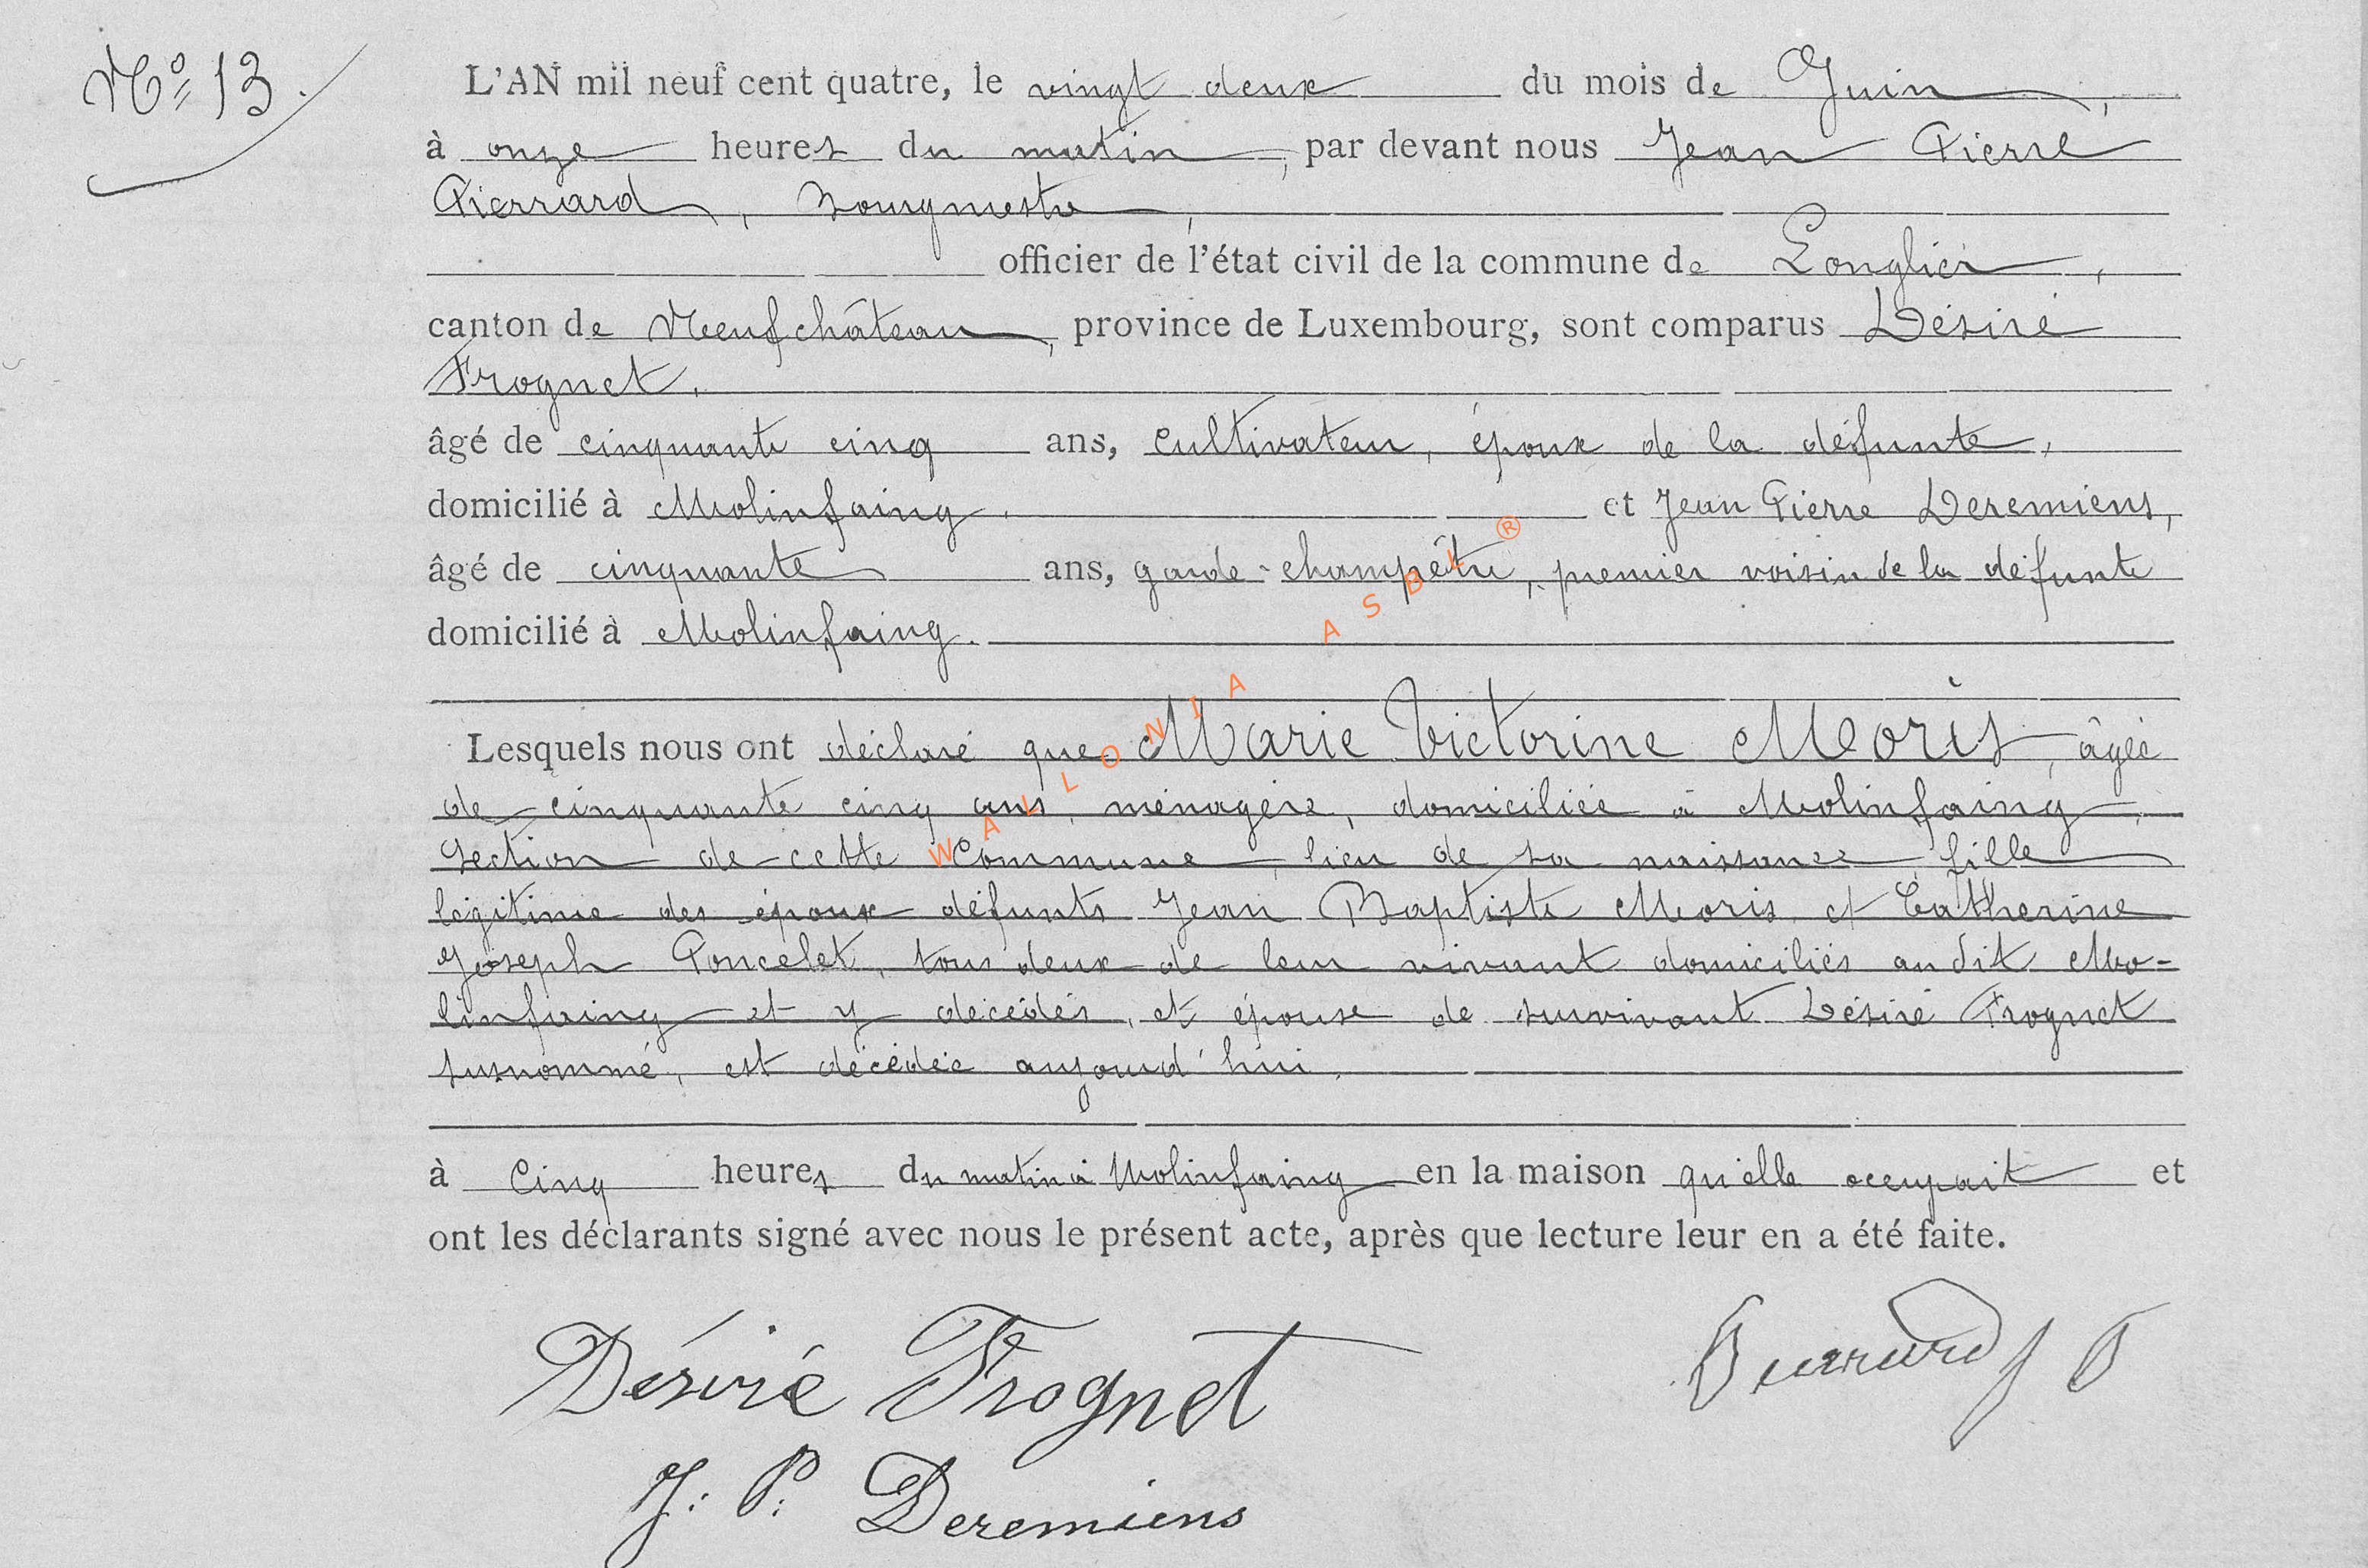 N° 13.
L'AN mil neuf cent quatre, le vingt deux du mois de Juin,
à onze heures du matin, par devant nous Jean Pierre
Pierrard, Bourgmestre,
officier de l'état civil de la commune de Longlier,
canton de Neufchâteau, province de Luxembourg, sont comparus Désiré
Frognet,
âgé de cinquante cinq ans, cultivateur, époux de la défunte,
domicilié à Molinfaing. et Jean Pierre Deremiens,
âgé de cinquante ans, garde-champêtre, premier voisin de la défunte
domicilié à Molinfaing.
Lesquels nous ont déclaré que Marie Victorine Moris, âgée
de cinquante cinq ans, ménagère, domiciliée à Molinfaing,
section de cette Commune, lieu de sa naissance, fille
légitime des époux défunts Jean Baptiste Moris et Catherine
Joseph Poncelet, tous deux de leur vivant domiciliés audit Mo-
linfaing et y décédés, et épouse de survivant Désiré Frognet
susnommé, est décédée aujourd'hui,
à Cinq heures du matin à Molinfaing en la maison qu'elle occupait et
ont les déclarants signé avec nous le présent acte, après que lecture leur en a été faite.
Désiré Frognet
Pierrard J P
J. P. Deremiens
WALLONIA ASBL ®